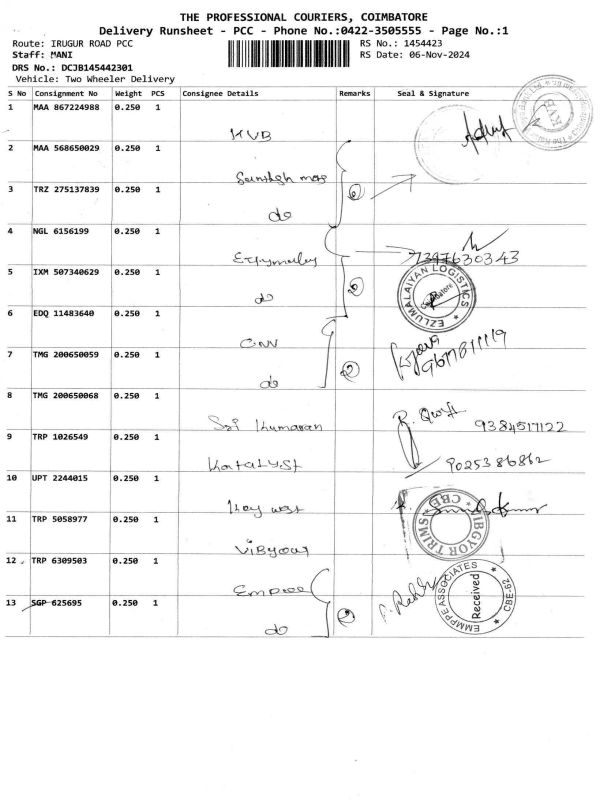 THE PROFESSIONAL COURIERS, COIMBATORE
Delivery Runsheet - PCC - Phone No.:0422-3505555 - Page No.:1
Route: IRUGUR ROAD PCC
RS No.: 1454423
Staff: MANI
RS Date: 06-Nov-2024
DRS No.: DCJB145442301
Vehicle: Two Wheeler Delivery
S No Consignment No Weight PCS Consignee Details Remarks Seal & Signature
1 MAA 867224988 0.250 1
KVB
2 MAA 568650029 0.250 1
3 TRZ 275137839 0.250 1
do
4 NGL 6156199 0.250 1
7397630343
5 IXM 507340629 0.250 1
do
EZLUMALAIYAN LOGISTICS
Coimbatore
6 EDQ 11483640 0.250 1
CNN
7 TMG 200650059 0.250 1
do
8 TMG 200650068 0.250 1
Sri Kumaran
9384517122
9 TRP 1026549 0.250 1
Katalyst
9025386862
10 UPT 2244015 0.250 1
Key west
11 TRP 5058977 0.250 1
Vibyour
VIBGYOR TRIMS
CBE
12 TRP 6309503 0.250 1
Empee
13 SGP 625695 0.250 1
do
2
EMMPPE ASSOCIATES
Received
CBE-62